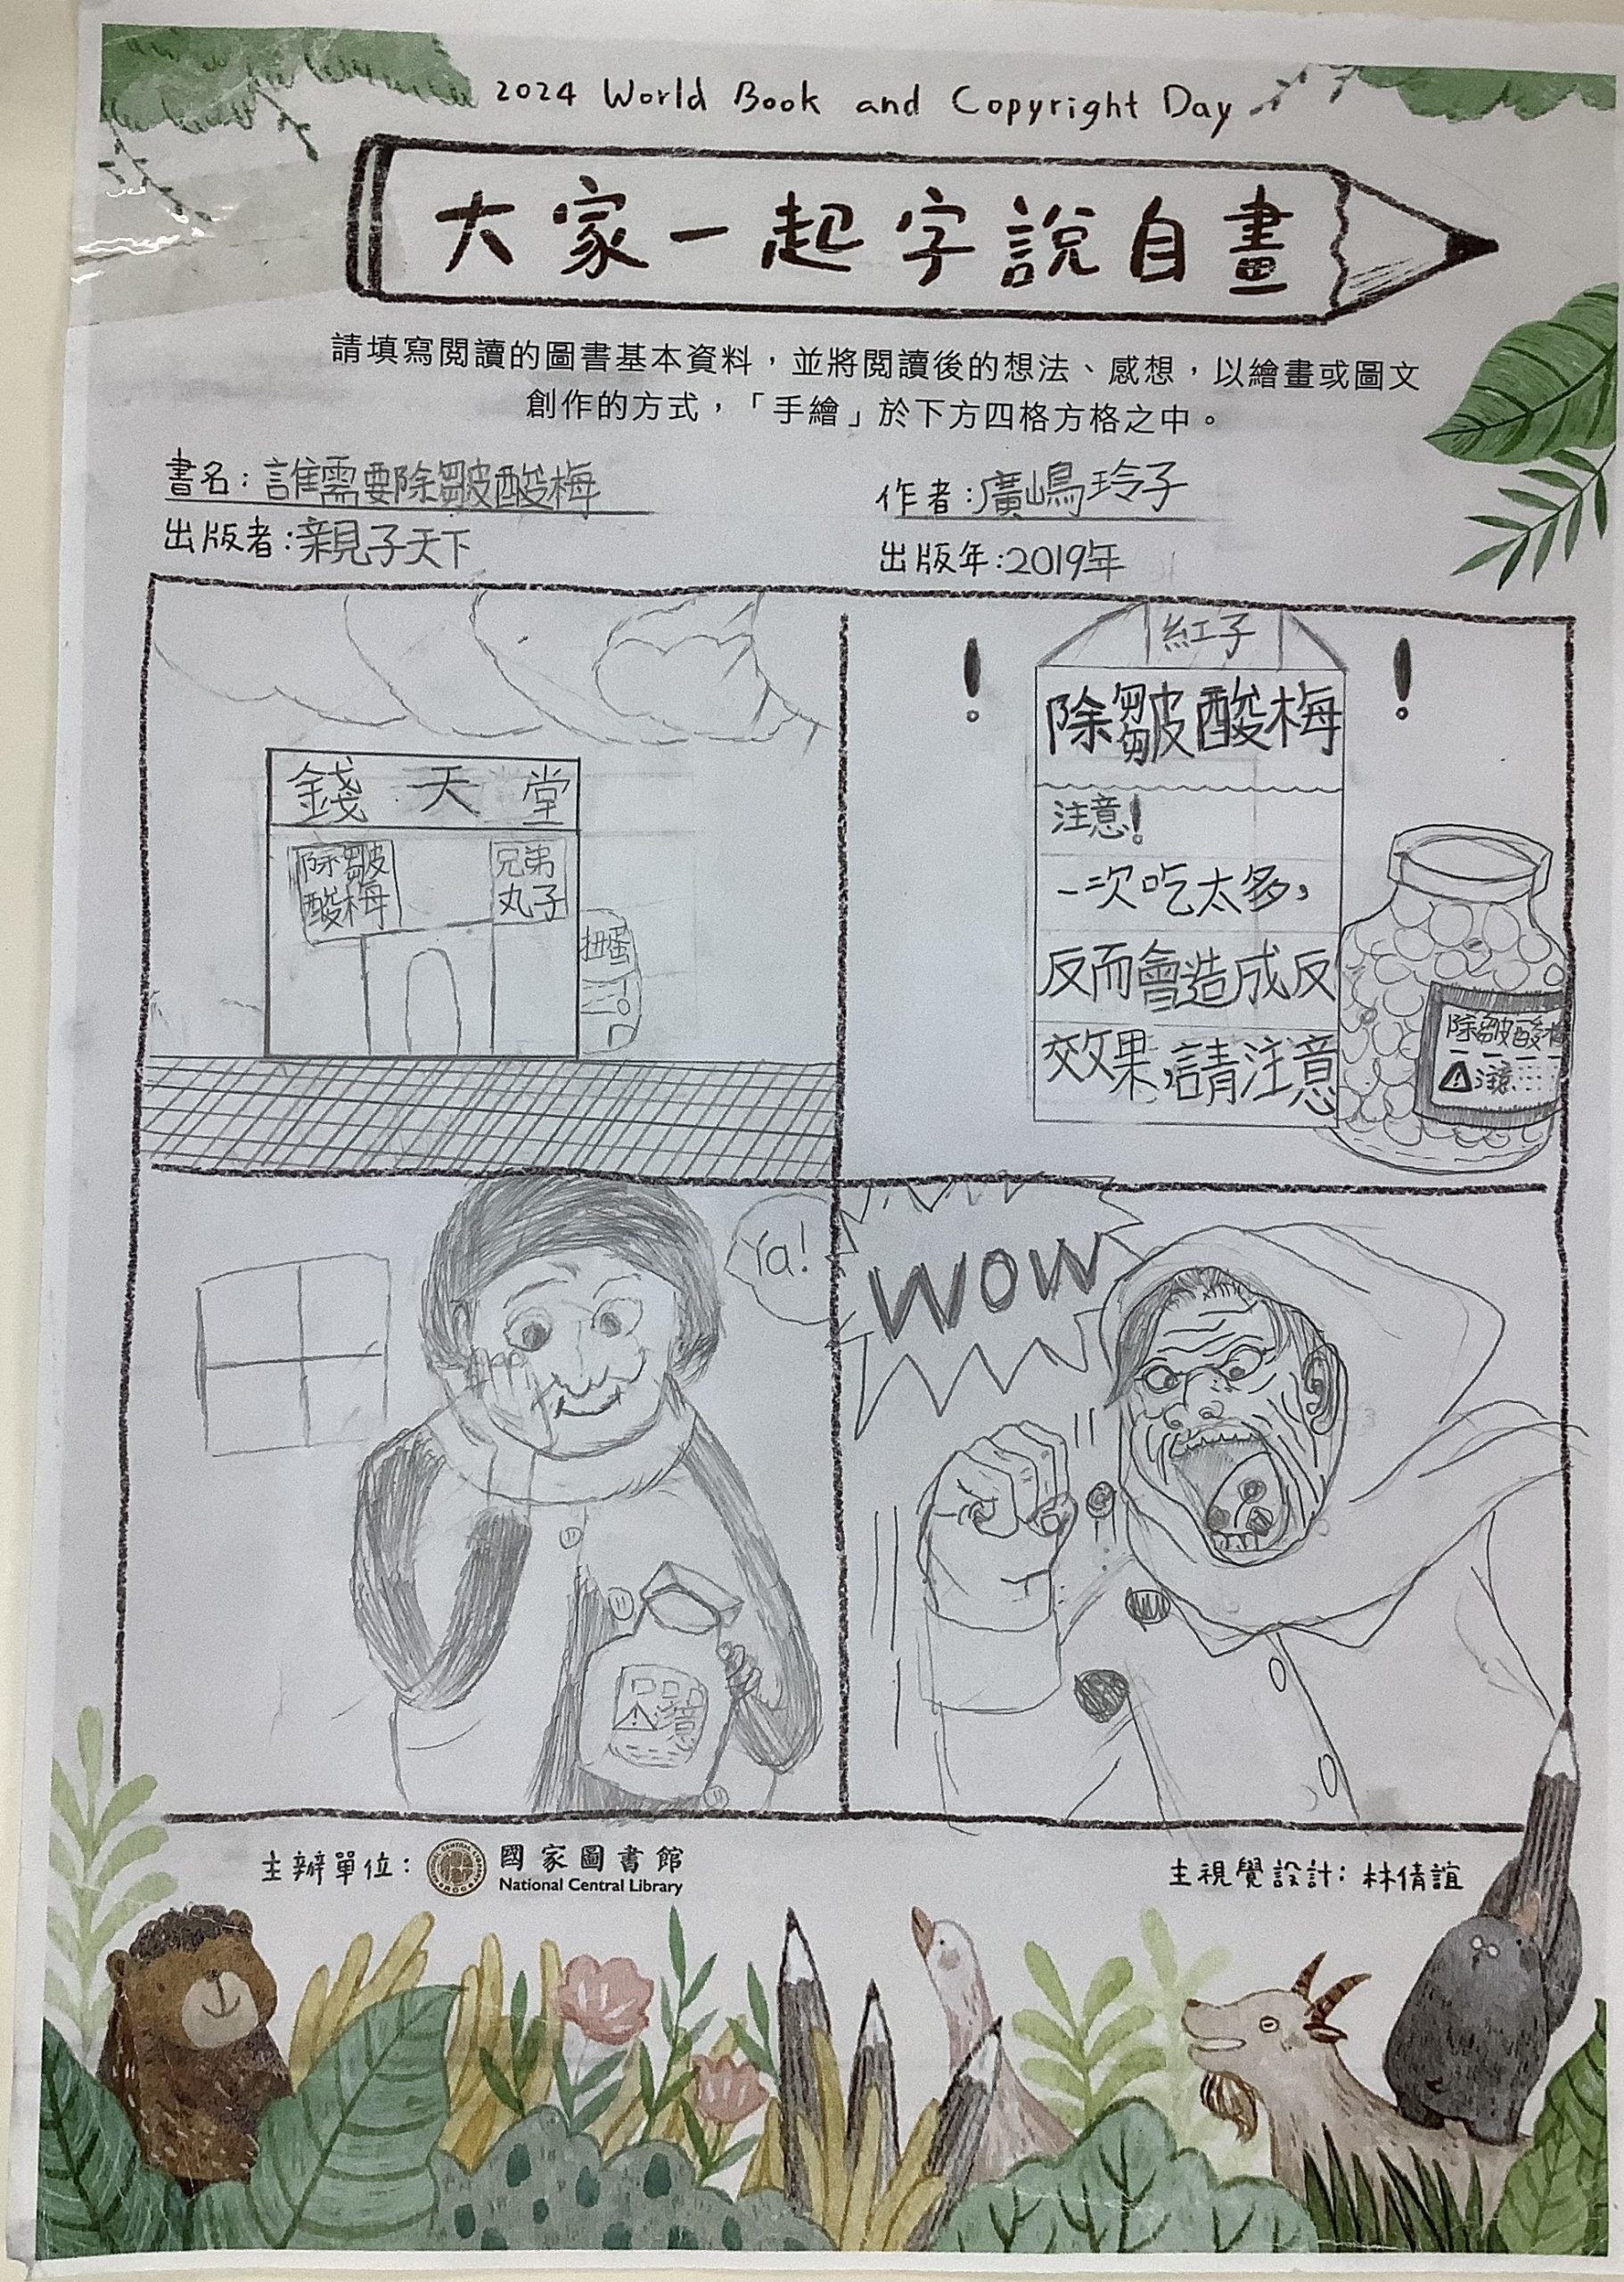 2024 World Book and Copyright Day
大家一起字說自畫
請填寫閱讀的圖書基本資料，並將閱讀後的想法、感想，以繪畫或圖文
創作的方式，「手繪」於下方四格方格之中。
書名：誰需要除皺酸梅
作者：廣嶋玲子
出版者：親子天下
出版年：2019年
錢天堂
除皺
酸梅
兄弟
丸子
扭蛋
！
紅子
！
除皺酸梅
注意！
一次吃太多，
反而會造成反
效果，請注意
除皺酸梅
注意
Ya!
注意
WOW
主辦單位：
國家圖書館
National Central Library
主視覺設計：林倩誼